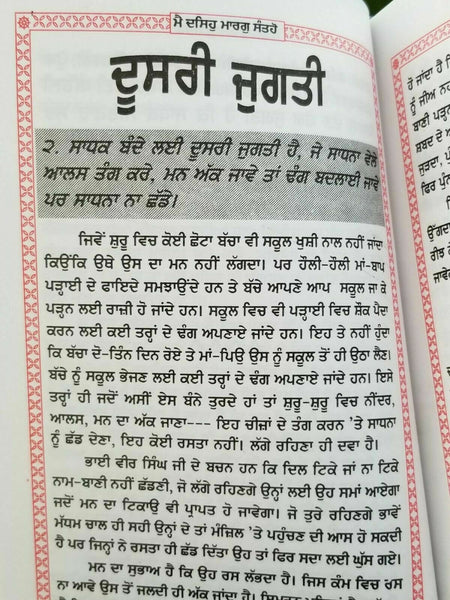 ਮੈ ਦਸਿਹੁ ਮਾਰਗੁ ਸੰਤਹੋ
ਦੂਸਰੀ ਜੁਗਤੀ
੨. ਸਾਧਕ ਬੰਦੇ ਲਈ ਦੂਸਰੀ ਜੁਗਤੀ ਹੈ, ਜੇ ਸਾਧਨਾ ਵੇਲੇ
ਆਲਸ ਤੰਗ ਕਰੇ, ਮਨ ਅੱਕ ਜਾਵੇ ਤਾਂ ਢੰਗ ਬਦਲਾਈ ਜਾਵੇ
ਪਰ ਸਾਧਨਾ ਨਾ ਛੱਡੇ।
ਜਿਵੇਂ ਸ਼ੁਰੂ ਵਿਚ ਕੋਈ ਛੋਟਾ ਬੱਚਾ ਵੀ ਸਕੂਲ ਖੁਸ਼ੀ ਨਾਲ ਨਹੀਂ ਜਾਂਦਾ
ਕਿਉਂਕਿ ਉਥੇ ਉਸ ਦਾ ਮਨ ਨਹੀਂ ਲੱਗਦਾ। ਪਰ ਹੌਲੀ-ਹੌਲੀ ਮਾਂ-ਬਾਪ
ਪੜ੍ਹਾਈ ਦੇ ਫਾਇਦੇ ਸਮਝਾਉਂਦੇ ਹਨ ਤੇ ਬੱਚੇ ਆਪਣੇ ਆਪ ਸਕੂਲ ਜਾ ਕੇ
ਪੜ੍ਹਨ ਲਈ ਰਾਜ਼ੀ ਹੋ ਜਾਂਦੇ ਹਨ। ਸਕੂਲ ਵਿਚ ਵੀ ਪੜਾਈ ਵਿਚ ਸ਼ੌਕ ਪੈਦਾ
ਕਰਨ ਲਈ ਕਈ ਤਰ੍ਹਾਂ ਦੇ ਢੰਗ ਅਪਣਾਏ ਜਾਂਦੇ ਹਨ। ਇਹ ਤੇ ਨਹੀਂ ਹੁੰਦਾ
ਕਿ ਬੱਚਾ ਦੋ-ਤਿੰਨ ਦਿਨ ਰੋਏ ਤੇ ਮਾਂ-ਪਿਉ ਉਸ ਨੂੰ ਸਕੂਲ ਤੋਂ ਹੀ ਉਠਾ ਲੈਣ।
ਬੱਚੇ ਨੂੰ ਸਕੂਲ ਭੇਜਣ ਲਈ ਕਈ ਤਰ੍ਹਾਂ ਦੇ ਢੰਗ ਅਪਣਾਏ ਜਾਂਦੇ ਹਨ। ਇਸੇ
ਤਰ੍ਹਾਂ ਹੀ ਜਦੋਂ ਅਸੀਂ ਏਸ ਬੰਨੇ ਤੁਰਦੇ ਹਾਂ ਤਾਂ ਸ਼ੁਰੂ-ਸ਼ੁਰੂ ਵਿਚ ਨੀਂਦਰ,
ਆਲਸ, ਮਨ ਦਾ ਅੱਕ ਜਾਣਾ--- ਇਹ ਚੀਜ਼ਾਂ ਦੇ ਤੰਗ ਕਰਨ 'ਤੇ ਸਾਧਨਾ
ਨੂੰ ਛੱਡ ਦੇਣਾ, ਇਹ ਕੋਈ ਰਸਤਾ ਨਹੀਂ। ਲੱਗੇ ਰਹਿਣਾ ਹੀ ਦਵਾ ਹੈ।
ਭਾਈ ਵੀਰ ਸਿੰਘ ਜੀ ਦੇ ਬਚਨ ਹਨ ਕਿ ਦਿਲ ਟਿਕੇ ਜਾਂ ਨਾ ਟਿਕੇ
ਨਾਮ-ਬਾਣੀ ਨਹੀਂ ਛੱਡਣੀ, ਜੇ ਲੱਗੇ ਰਹਿਣਗੇ ਉਨ੍ਹਾਂ ਲਈ ਉਹ ਸਮਾਂ ਆਏਗਾ
ਜਦੋਂ ਮਨ ਦਾ ਟਿਕਾਉ ਵੀ ਪ੍ਰਾਪਤ ਹੋ ਜਾਵੇਗਾ। ਜੋ ਤੁਰੇ ਰਹਿਣਗੇ ਭਾਵੇਂ
ਮੱਧਮ ਚਾਲ ਹੀ ਸਹੀ ਉਨ੍ਹਾਂ ਦੇ ਤਾਂ ਮੰਜ਼ਿਲ 'ਤੇ ਪਹੁੰਚਣ ਦੀ ਆਸ ਹੋ ਸਕਦੀ
ਹੈ ਪਰ ਜਿਨ੍ਹਾਂ ਨੇ ਰਸਤਾ ਹੀ ਛੱਡ ਦਿੱਤਾ ਉਹ ਤਾਂ ਫਿਰ ਸਦਾ ਲਈ ਘੁੱਸ ਗਏ।
ਮਨ ਦਾ ਸੁਭਾਅ ਹੈ ਕਿ ਉਹ ਰਸ ਲੱਭਦਾ ਹੈ। ਜਿਸ ਕੰਮ ਵਿਚ ਰਸ
ਨਾ ਆਵੇ ਉਸ ਤੋਂ ਜਲਦੀ ਹੀ ਅੱਕ ਜਾਂਦਾ ਹੈ।
ਹੋ ਜਾਂਦਾ ਹੈ
ਨੂੰ ਜੀਅ
ਬਾਣੀ ਪੜ੍ਹਨ
ਸ਼ਬਦ ਦੇ
ਜੁੜਦਾ,
ਫਿਰ